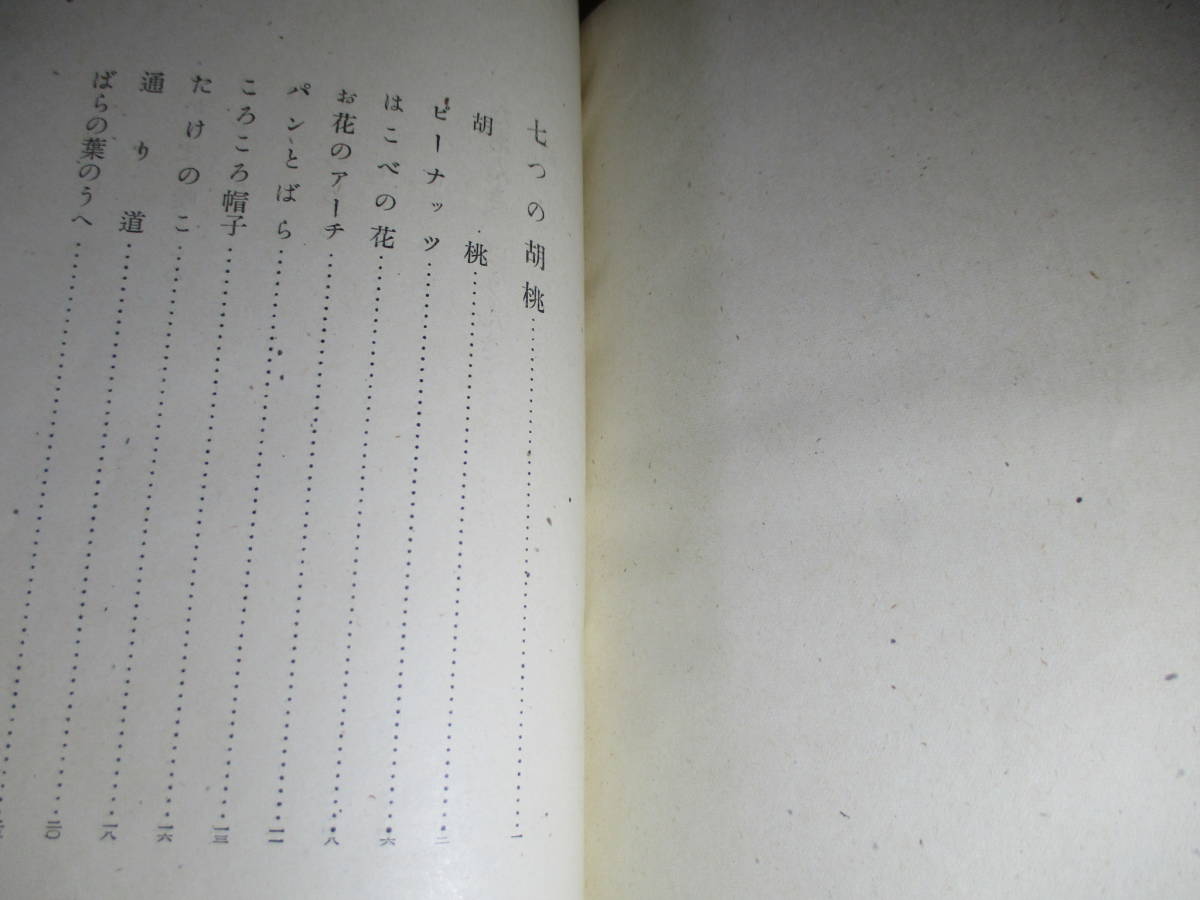 七つの胡桃……………………一
胡桃……………………二
ピーナッツ……………………六
はこべの花……………………八
お花のアーチ……………………一一
パンとばら……………………一三
ころころ帽子……………………一六
たけのこ……………………一八
通り道……………………二〇
ばらの葉のうへ……………………